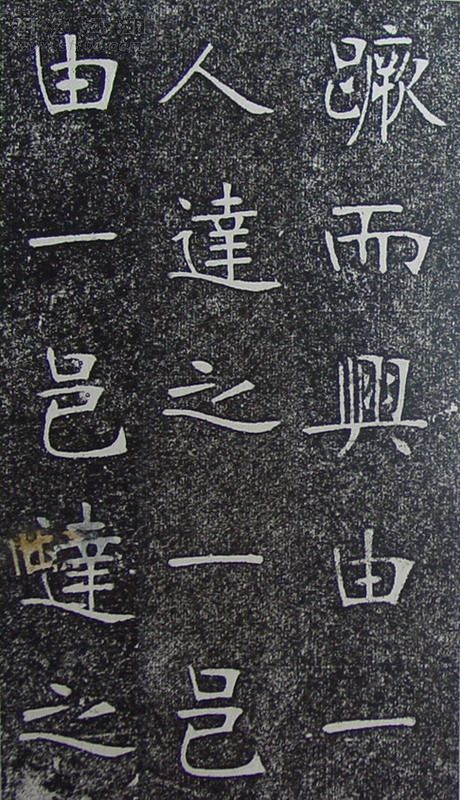 蹶而興由一
人達之一邑
由一邑達之